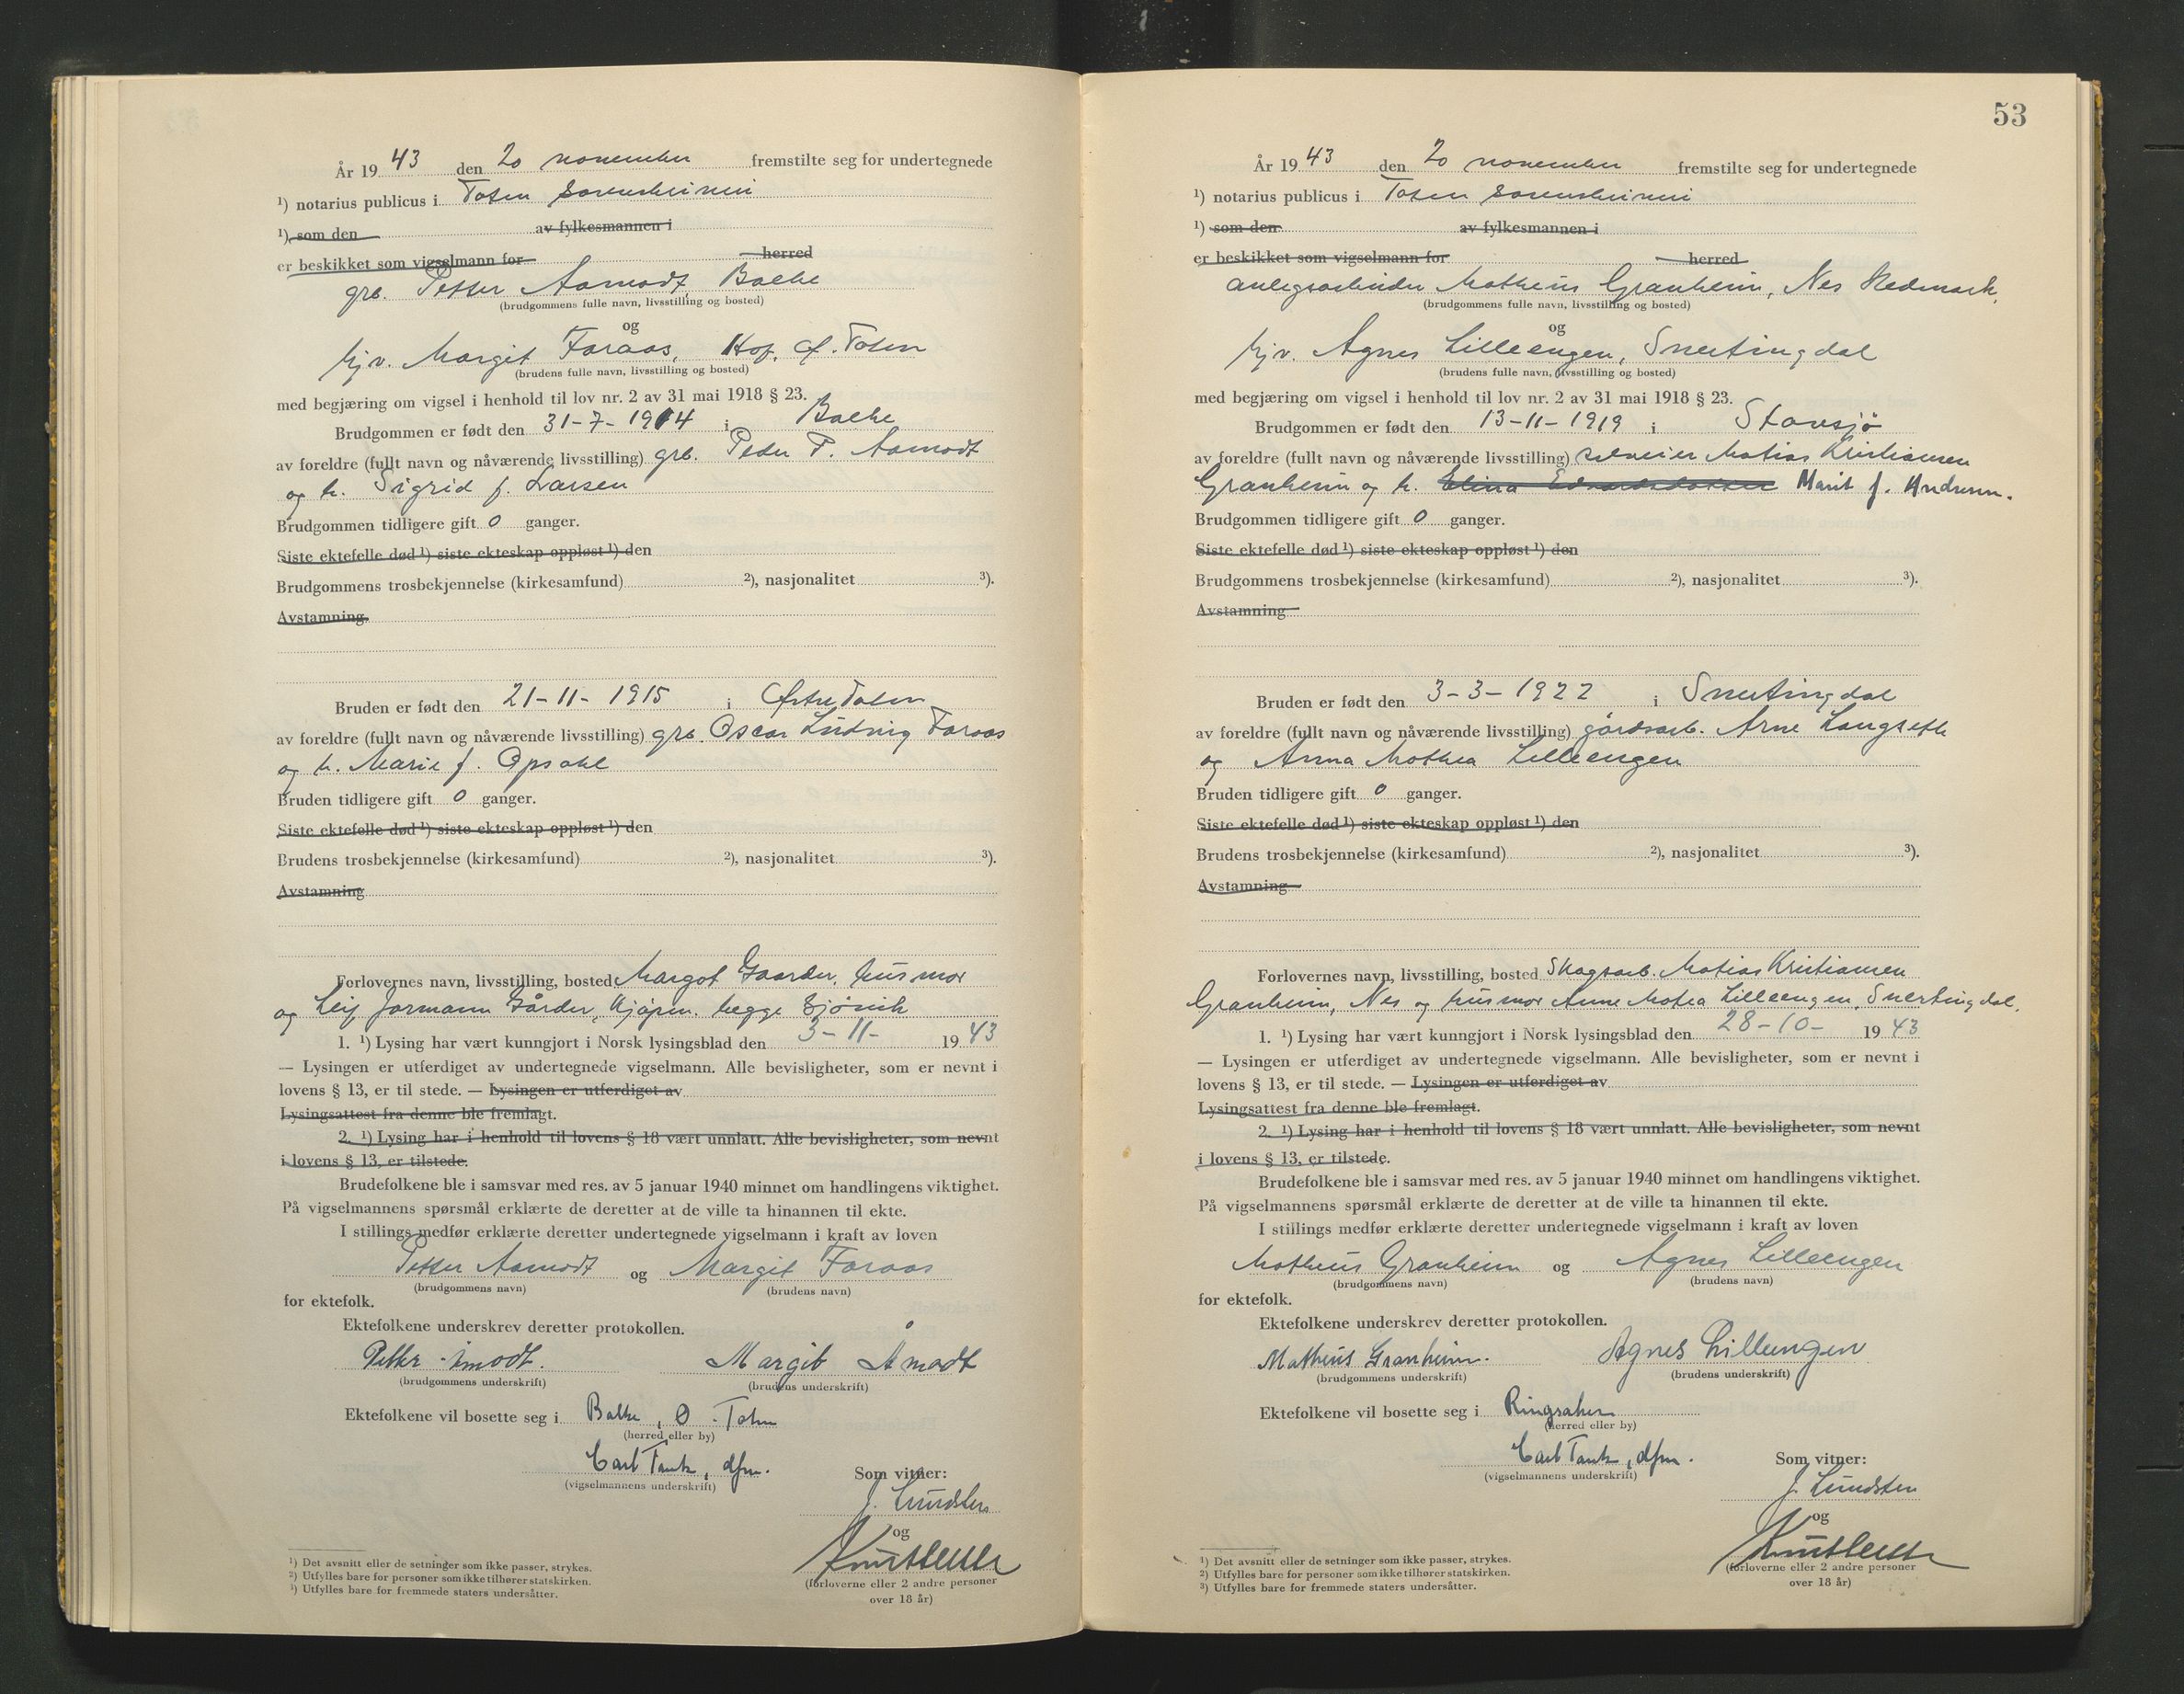 År 19 43 den 20 november fremstilte seg for undertegnede
¹) notarius publicus i Toten sorenskriveri
¹) som den av fylkesmannen i
er beskikket som vigselmann for herred
grb. Petter Aamodt, Balke
(brudgommens fulle navn, livsstilling og bosted)
og
hjv. Margit Faraas, Hof, Ø. Toten
(brudens fulle navn, livsstilling og bosted)
med begjæring om vigsel i henhold til lov nr. 2 av 31 mai 1918 § 23.
Brudgommen er født den 31-7-1914 i Balke
av foreldre (fullt navn og nåværende livsstilling) grb. Peder P. Aamodt
og h. Sigrid f. Larsen
Brudgommen tidligere gift 0 ganger.
Siste ektefelle død ¹) siste ekteskap oppløst ¹) den
Brudgommens trosbekjennelse (kirkesamfund) ²), nasjonalitet ³).
Avstamning
Bruden er født den 21-11-1915 i Østre Toten
av foreldre (fullt navn og nåværende livsstilling) grb. Oscar Ludvig Faraas
og h. Marie f. Opsahl
Bruden tidligere gift 0 ganger.
Siste ektefelle død ¹) siste ekteskap oppløst ¹) den
Brudens trosbekjennelse (kirkesamfund) ²), nasjonalitet ³).
Avstamning
Forlovernes navn, livsstilling, bosted Margot Gaarder, husmor
og Leif Jormann Gårder, kjøpm. begge Gjøvik
1. ¹) Lysing har vært kunngjort i Norsk lysingsblad den 3-11- 19 43
— Lysingen er utferdiget av undertegnede vigselmann. Alle bevisligheter, som er nevnt i
lovens § 13, er til stede. — Lysingen er utferdiget av
Lysingsattest fra denne ble fremlagt.
2. ¹) Lysing har i henhold til lovens § 18 vært unnlatt. Alle bevisligheter, som nevnt
i lovens § 13, er tilstede.
Brudefolkene ble i samsvar med res. av 5 januar 1940 minnet om handlingens viktighet.
På vigselmannens spørsmål erklærte de deretter at de ville ta hinannen til ekte.
I stillings medfør erklærte deretter undertegnede vigselmann i kraft av loven
Petter Aamodt og Margit Faraas
(brudgommens navn) (brudens navn)
for ektefolk.
Ektefolkene underskrev deretter protokollen.
Petter Åmodt. Margit Åmodt
(brudgommens underskrift) (brudens underskrift)
Ektefolkene vil bosette seg i Balke, Ø. Toten
(herred eller by)
Carl Tank, dfm.
(vigselmannens underskrift)
Som vitner:
J. Lundsten
og
(forloverne eller 2 andre personer
over 18 år)
¹) Det avsnitt eller de setninger som ikke passer, strykes.
²) Utfylles bare for personer som ikke tilhører statskirken.
³) Utfylles bare for fremmede staters undersåtter.
53
År 19 43 den 20 november fremstilte seg for undertegnede
¹) notarius publicus i Toten sorenskriveri
¹) som den av fylkesmannen i
er beskikket som vigselmann for herred
anlegsarbeider Matheus Granheim, Nes Hedmark,
(brudgommens fulle navn, livsstilling og bosted)
og
hjv. Agnes Lilleengen, Snertingdal
(brudens fulle navn, livsstilling og bosted)
med begjæring om vigsel i henhold til lov nr. 2 av 31 mai 1918 § 23.
Brudgommen er født den 13-11-1919 i Stavsjø
av foreldre (fullt navn og nåværende livsstilling) selveier Matias Kristiansen
Granheim og h. Elina Marit f. Andresen.
Brudgommen tidligere gift 0 ganger.
Siste ektefelle død ¹) siste ekteskap oppløst ¹) den
Brudgommens trosbekjennelse (kirkesamfund) ²), nasjonalitet ³).
Avstamning
Bruden er født den 3-3-1922 i Snertingdal
av foreldre (fullt navn og nåværende livsstilling) gårdsarb. Arne Langseth
og Anna Mathea Lilleengen
Bruden tidligere gift 0 ganger.
Siste ektefelle død ¹) siste ekteskap oppløst ¹) den
Brudens trosbekjennelse (kirkesamfund) ²), nasjonalitet ³).
Avstamning
Forlovernes navn, livsstilling, bosted Skogsarb. Matias Kristiansen
Granheim, Nes og husmor Anne Matea Lilleengen, Snertingdal.
1. ¹) Lysing har vært kunngjort i Norsk lysingsblad den 28-10- 19 43
— Lysingen er utferdiget av undertegnede vigselmann. Alle bevisligheter, som er nevnt i
lovens § 13, er til stede. — Lysingen er utferdiget av
Lysingsattest fra denne ble fremlagt.
2. ¹) Lysing har i henhold til lovens § 18 vært unnlatt. Alle bevisligheter, som nevnt
i lovens § 13, er tilstede.
Brudefolkene ble i samsvar med res. av 5 januar 1940 minnet om handlingens viktighet.
På vigselmannens spørsmål erklærte de deretter at de ville ta hinannen til ekte.
I stillings medfør erklærte deretter undertegnede vigselmann i kraft av loven
Matheus Granheim og Agnes Lilleengen
(brudgommens navn) (brudens navn)
for ektefolk.
Ektefolkene underskrev deretter protokollen.
Matheus Granheim. Agnes Lilleengen
(brudgommens underskrift) (brudens underskrift)
Ektefolkene vil bosette seg i Ringsaker
(herred eller by)
Carl Tank, dfm.
(vigselmannens underskrift)
Som vitner:
J. Lundsten
og
(forloverne eller 2 andre personer
over 18 år)
¹) Det avsnitt eller de setninger som ikke passer, strykes.
²) Utfylles bare for personer som ikke tilhører statskirken.
³) Utfylles bare for fremmede staters undersåtter.